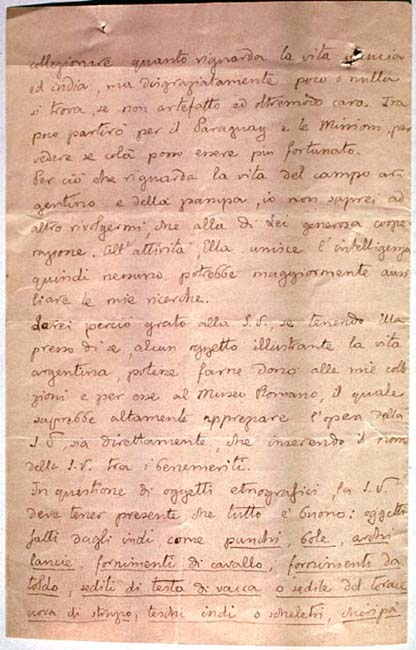 collezionare quanto riguarda la vita gaucia
ed india, ma disgraziatamente poco o nulla
si trova, se non artefatto ed oltremodo caro. Tra
poco partirò per il Paraguay e le Missioni, per
vedere se colà posso essere più fortunato.
Per ciò che riguarda la vita del campo ar-
gentino e della pampa, io non saprei ad
altro rivolgermi, che alla di Lei generosa coope-
razione. All'attività, Ella unisce l'intelligenza
quindi nessuno potrebbe maggiormente ausi-
liare le mie ricerche.
Sarei perciò grato alla S.V., se tenendo Ella
presso di se, alcun oggetto illustrante la vita
argentina, potesse farne Dono alle mie colle-
zioni e per esse al Museo Romano, il quale
saprebbe altamente apprezzare l'opera della
S.V, sia direttamente, che inserendo il nome
della S.V. tra i benemeriti.
In questione di oggetti etnografici, la S.V
deve tener presente che tutto è buono: oggetti
fatti dagli indi come punchi, bole, archi
lancie, fornimenti di cavallo, fornimenti da
toldo, sedili di testa di vacca o sedile del torace
uova di struzzo, teschi indi o scheletri, chiripà